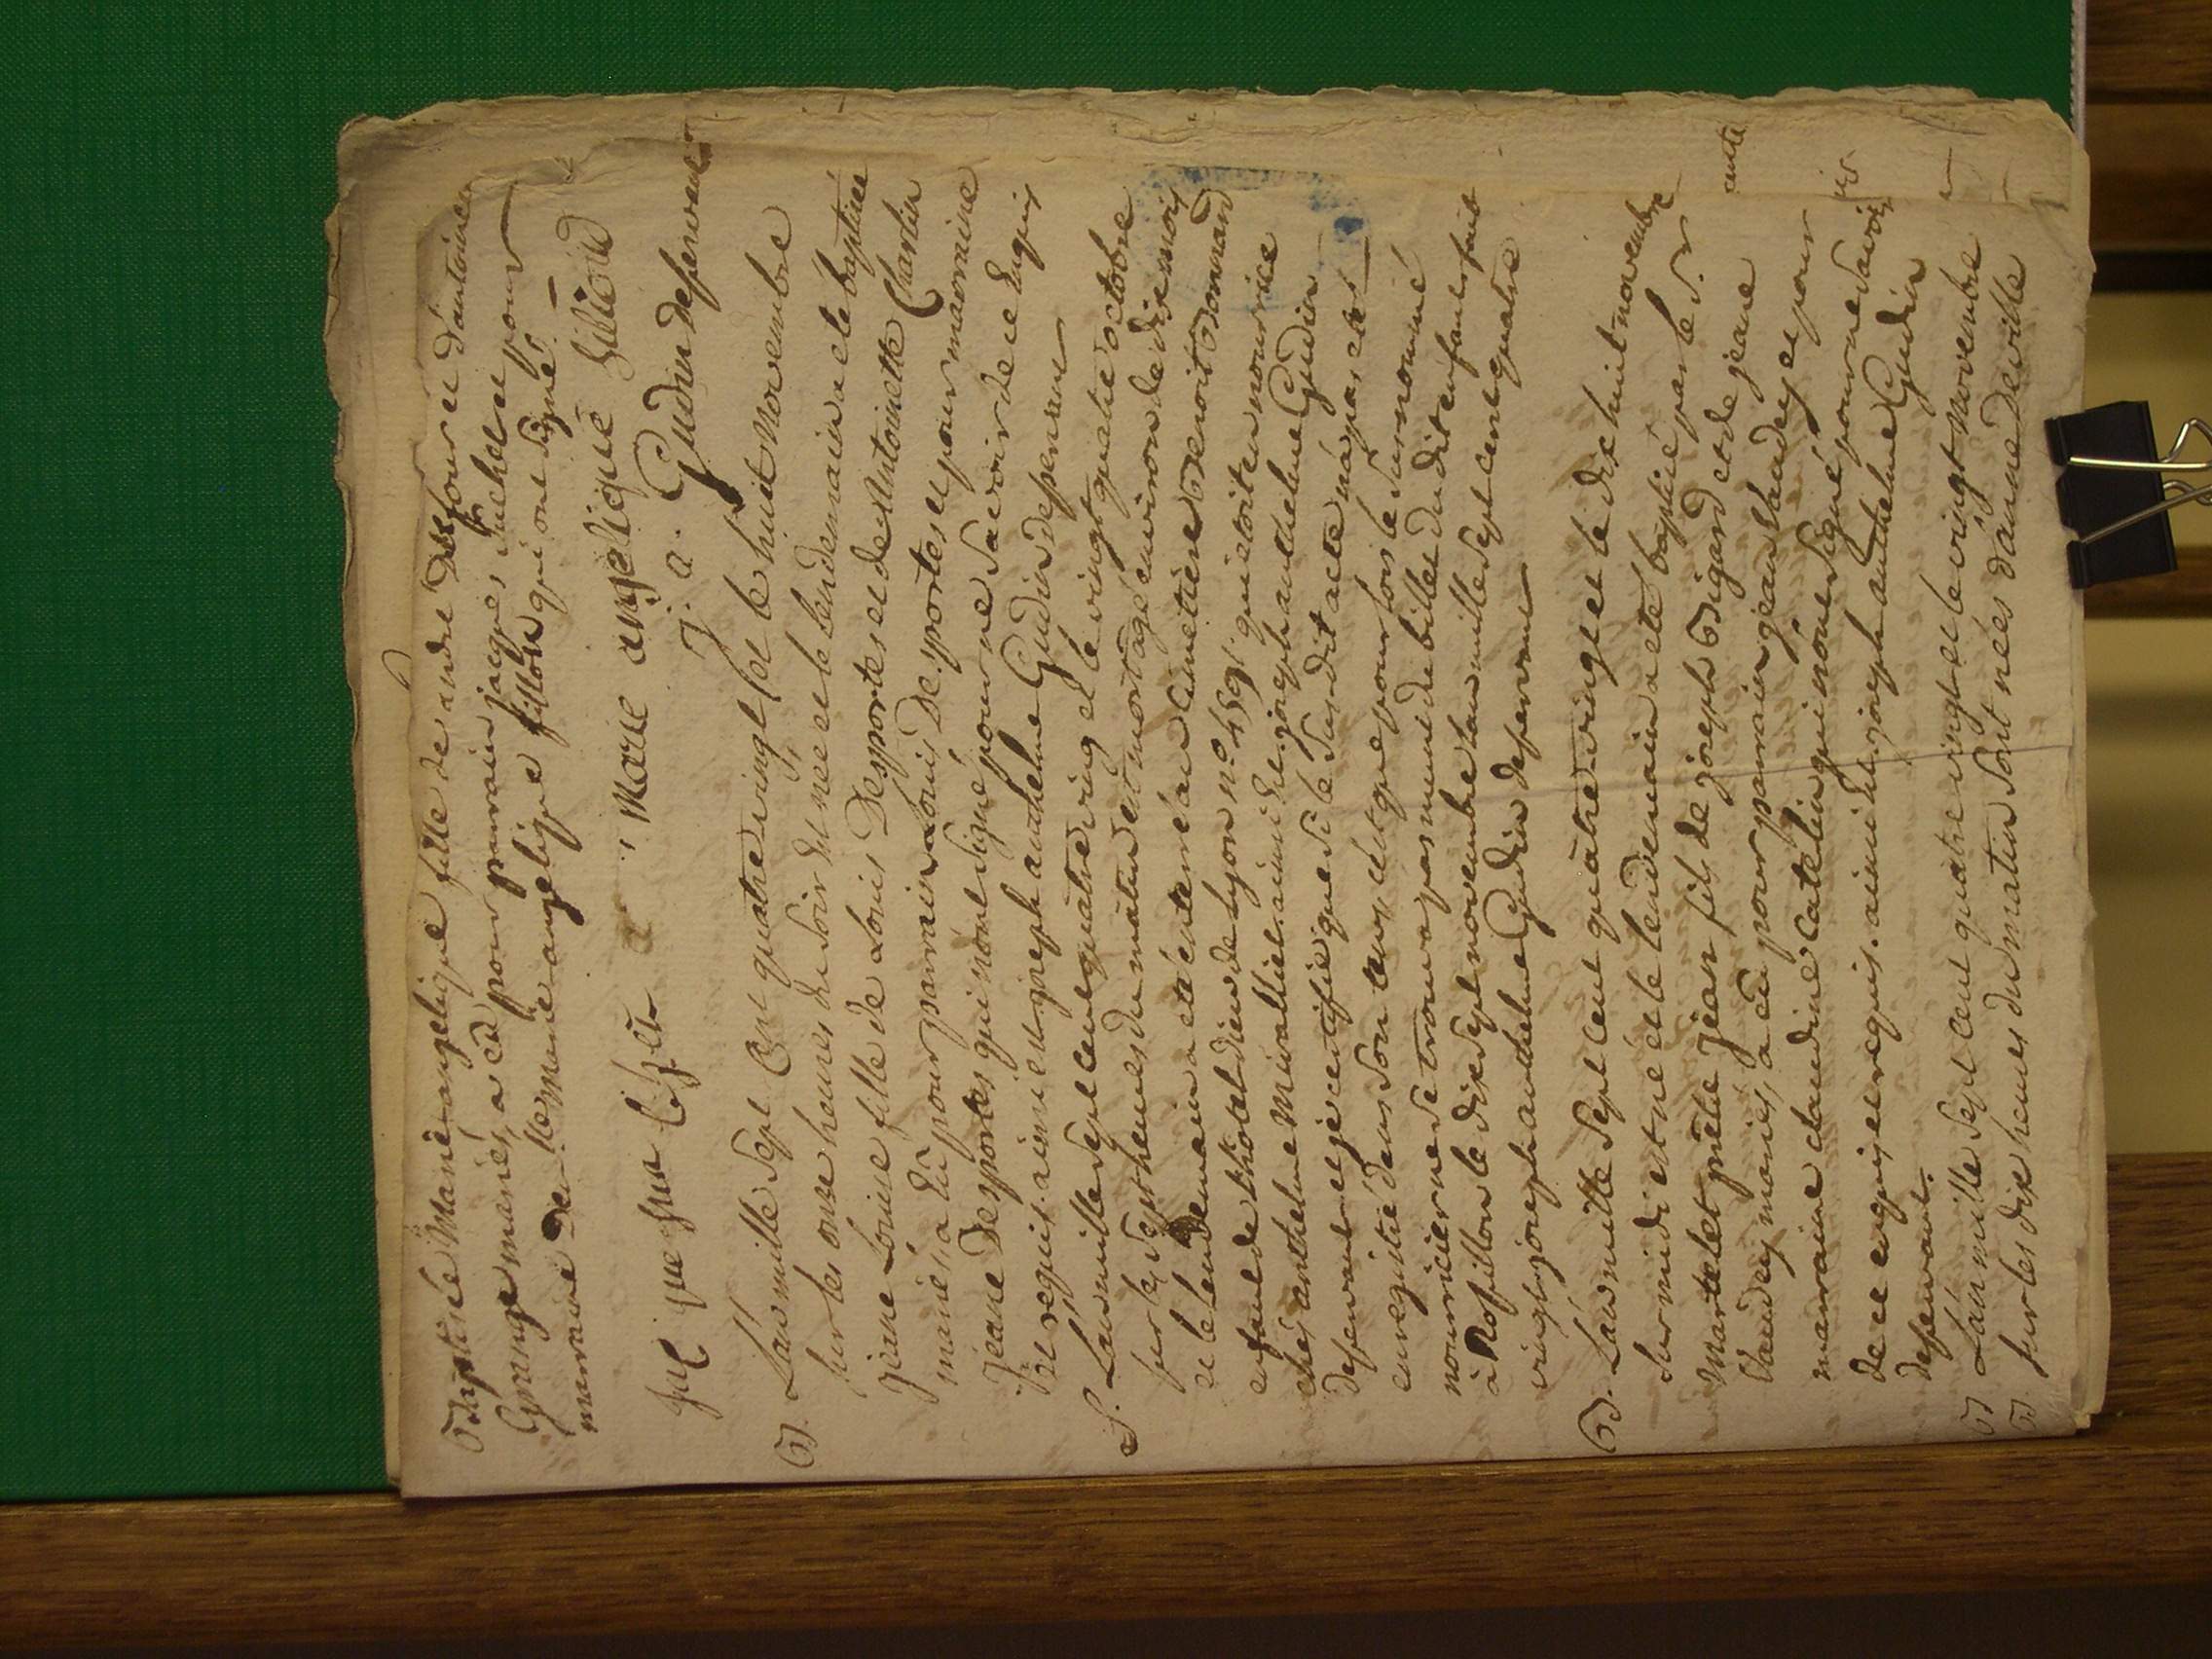 Baptisée Marie angelique fille de andré Dufour et d'antoinette
Grange mariés, a eu pour parrain jacques Juchet et pour
marraine Demlle marie angelique fillion qui ont signé.
Marie angelique fillioud
j. a. Gudin desservant
B. L'an mille Sept Cent quatre vingt et le huit Novembre
sur les onze heures du soir est née et le lendemain a eté baptisée
jeane Louise fille de Louis Desportes et de Antoinette Chartin
mariés, a Eu pour parrain Louis Desportes et pour marraine
jeane Desportes qui n'ont signé pour ne Savoir de ce Enquis
et requis. ainsi est joseph anthelme Gudin desservant
S. L'an mille Sept cent quatre vingt et le vingt quatre octobre
sur les Sept heures du matin est mort agé environ de dix mois
et le lendemain a eté enterré au Cimetière Benoit Bonnand
enfant de l'hotel dieu de Lyon n.o 4591 qui etoit en nourrice
chés anthelme Mirallier. ainsi Est joseph anthelme Gudin
desservant et je certifie que si le Susdit acte n'a pas eté
enregistré dans Son tems, c'est que pour lors le Surnommé
nourricier ne se trouva pas muni du billet du dit enfant fait
à Rossillon le dix Sept novembre l'an mille Sept cent quatre
vingt joseph anthelme Gudin desservant
B. L'an mille Sept cent quatre vingt et le dix huit novembre
Sur midi est né et le lendemain a eté baptisé par le S.r
Martelet prêtre jean fils de joseph Brigand et de jeane
mariés, a eu pour parrain jean et pour
marraine claudine Catelin qui n'ont Signé pour ne Savoir
de ce enquis et requis. ainsi Est joseph anthelme Gudin
desservant.
B. L'an mille Sept cent quatre vingt et le vingt Novembre
B. sur les dix heures du matin Sont nées d'anne Deville